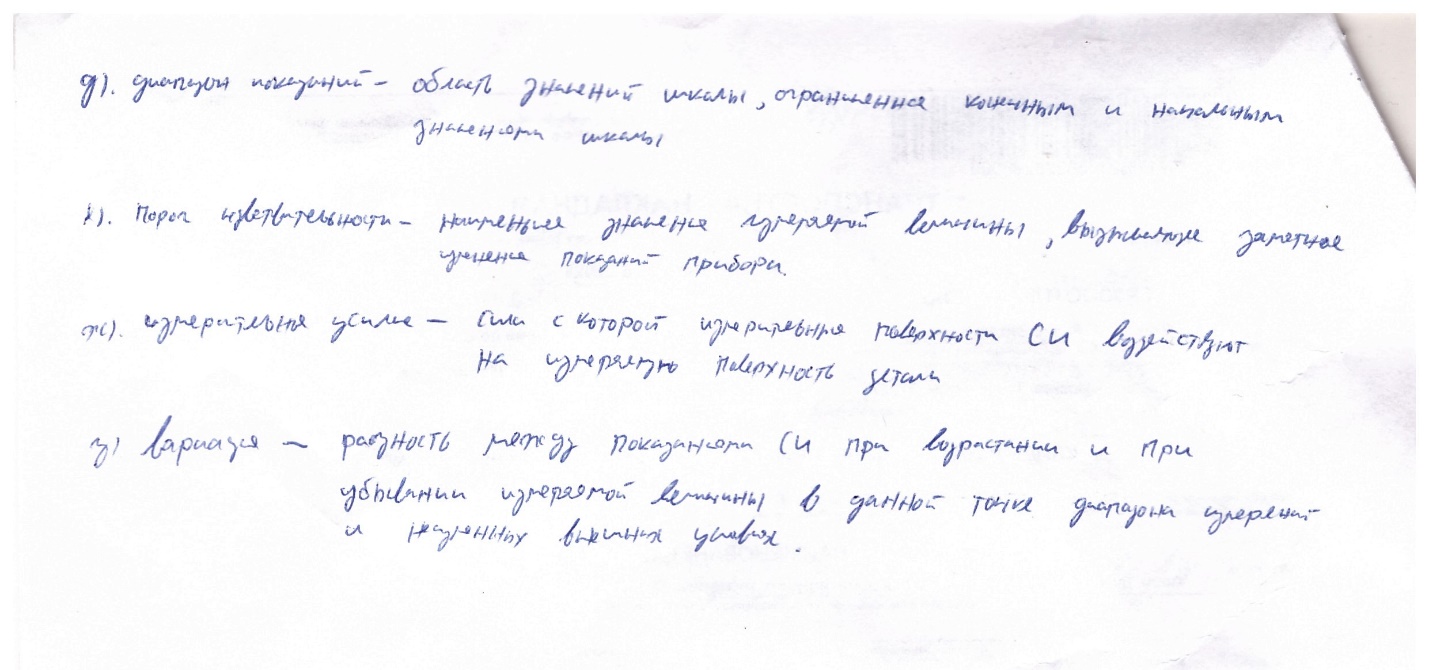 д). диапазон показаний – область значений шкалы, ограниченная конечным и начальным
значениями шкалы
порог чувствительности – наименьшее значение измеряемой величины, вызывающее заметное
изменение показаний прибора.
ж). измерительное усилие – сила с которой измерительные поверхности СИ воздействуют
на измеряемую поверхность детали
з) вариация – разность между показаниями СИ при возрастании и при
убывании измеряемой величины в данной точке диапазона измерений
и неизменных внешних условиях.